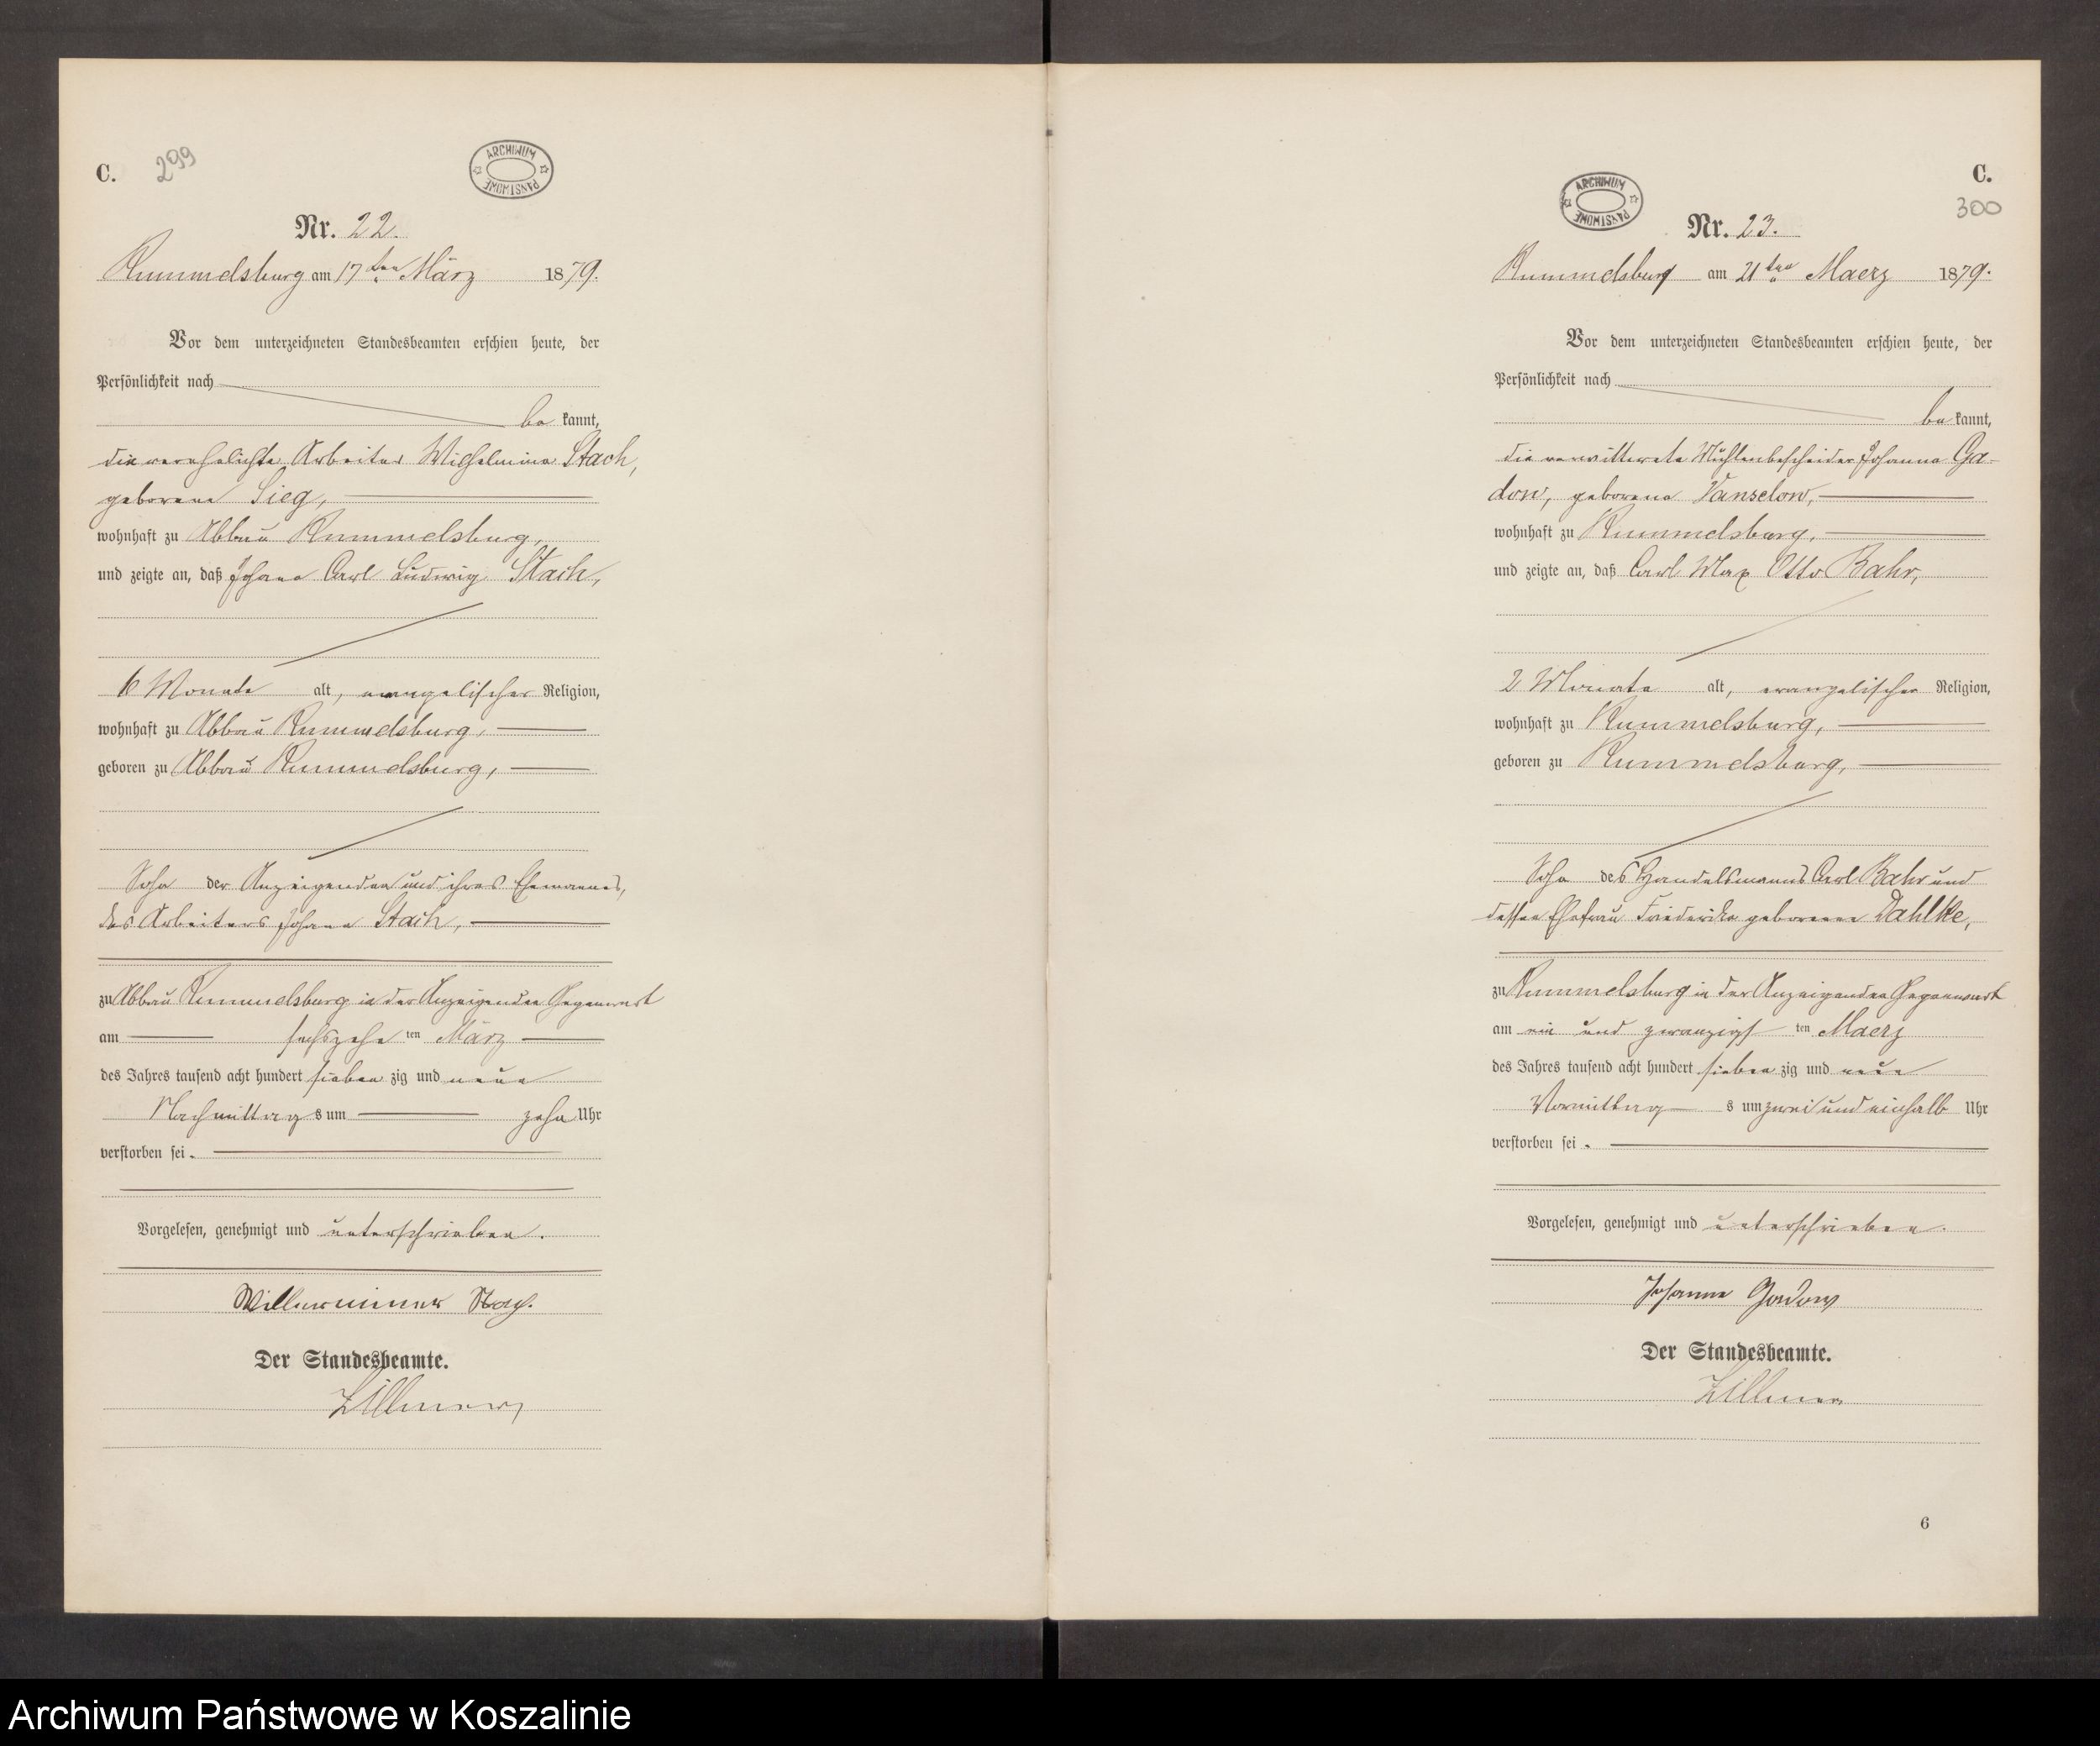 C. 299
ARCHIWUM PAŃSTWOWE
Nr. 22.
Rummelsburg am 17ten März 1879.
Vor dem unterzeichneten Standesbeamten erschien heute, der
Persönlichkeit nach
be kannt,
die verehelichte Arbeiter Wilhelmine Stach,
geborene Sieg,
wohnhaft zu Abbau Rummelsburg,
und zeigte an, daß Johann Carl Ludwig Stach,
6 Monate alt, evangelischer Religion,
wohnhaft zu Abbau Rummelsburg,
geboren zu Abbau Rummelsburg,
Sohn der Anzeigenden und ihres Ehemannes,
des Arbeiters Johann Stach,
zu Abbau Rummelsburg in der Anzeigenden Gegenwart
am sechszehn ten März
des Jahres tausend acht hundert sieben zig und neun
Nachmittag s um zehn Uhr
verstorben sei.
Vorgelesen, genehmigt und unterschrieben.
Der Standesbeamte.
Zillmer
C.
300
ARCHIWUM PAŃSTWOWE
Nr. 23.
Rummelsburg am 21ten Maerz 1879.
Vor dem unterzeichneten Standesbeamten erschien heute, der
Persönlichkeit nach
be kannt,
die verwittwete Mühlenbescheider Johanna Ga-
dow, geborene Vanselow,
wohnhaft zu Rummelsburg,
und zeigte an, daß Carl Max Otto Bahr,
2 Monate alt, evangelischer Religion,
wohnhaft zu Rummelsburg,
geboren zu Rummelsburg,
Sohn des Handelsmanns Carl Bahr und
dessen Ehefrau Friederike geborene Dahlke,
zu Rummelsburg in der Anzeigenden Gegenwart
am ein und zwanzigs ten Maerz
des Jahres tausend acht hundert sieben zig und neun
Vormittag s um zwei und einhalb Uhr
verstorben sei.
Vorgelesen, genehmigt und unterschrieben.
Johanna Gadow
Der Standesbeamte.
Zillmer
6
Archiwum Państwowe w Koszalinie